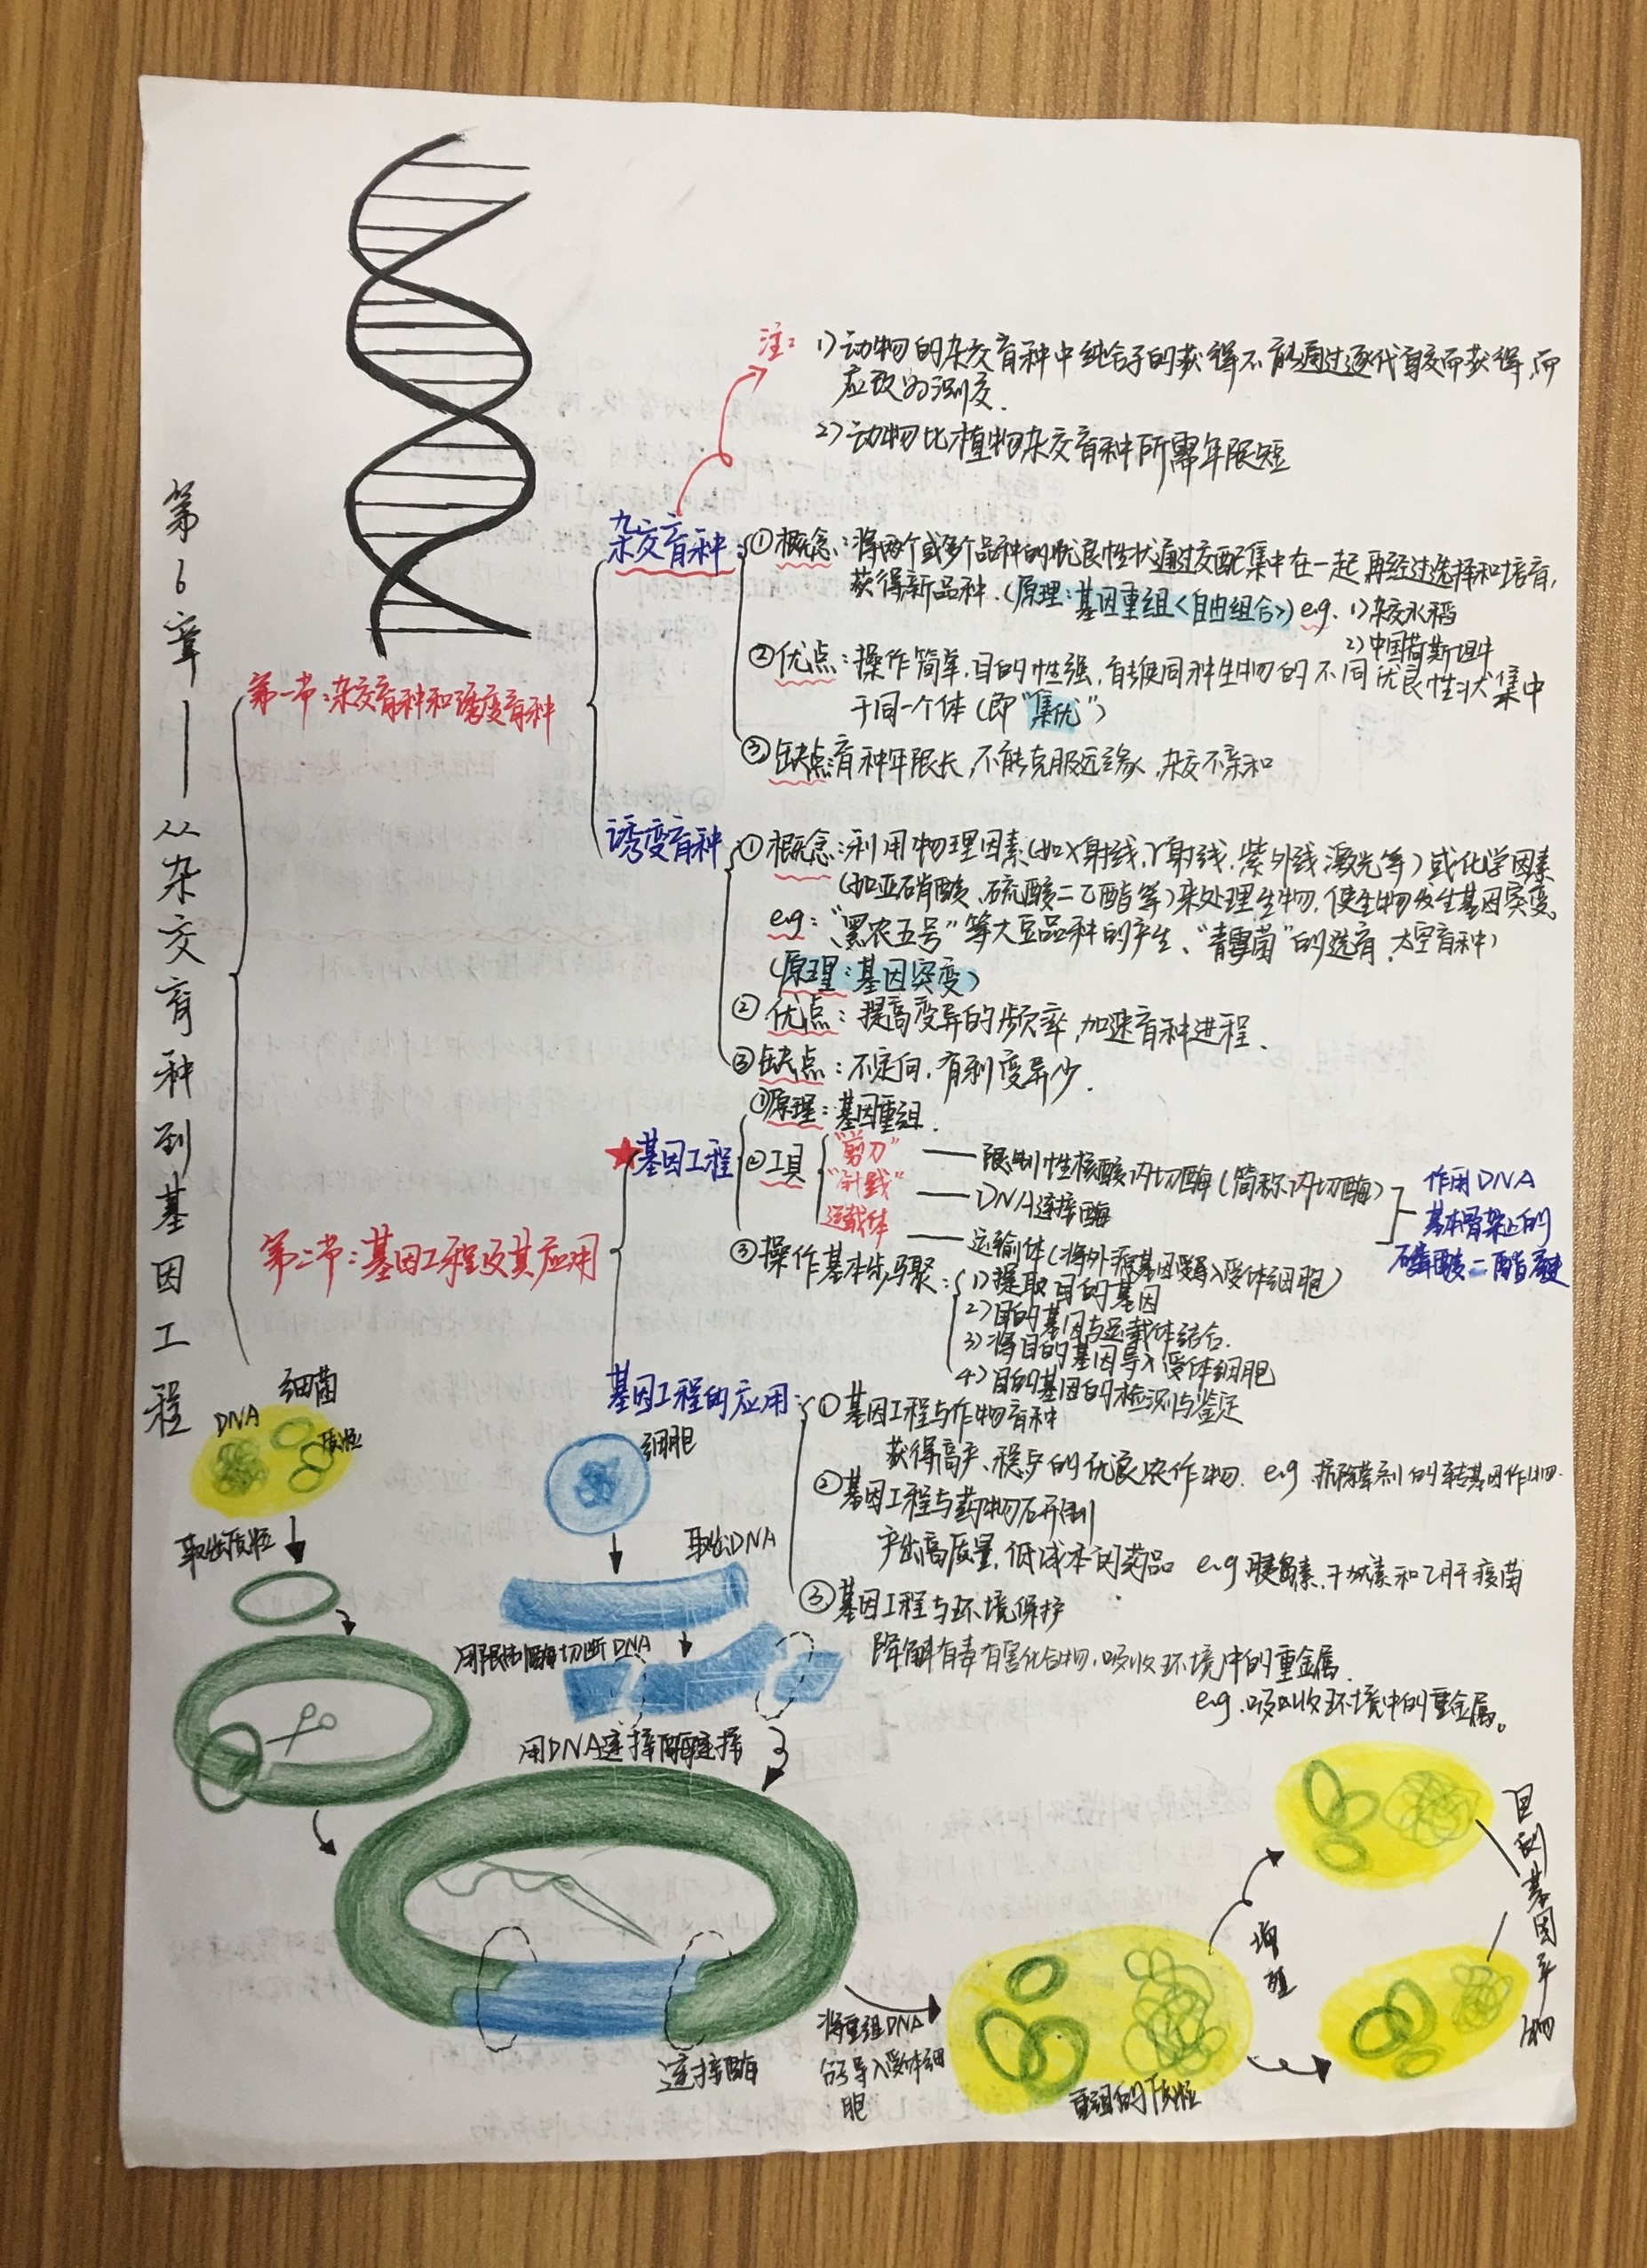 第6章——从杂交育种到基因工程
注:
1)动物的杂交育种中纯合子的获得不能通过逐代自交而获得,而
应改为测交.
2)动物比植物杂交育种所需年限短
第一节:杂交育种和诱变育种
杂交育种:
①概念:将两个或多个品种的优良性状通过交配集中在一起再经过选择和培育,
获得新品种.(原理:基因重组<自由组合>) e.g. 1)杂交水稻
2)中国荷斯坦牛
②优点:操作简单,目的性强,能使同种生物的不同优良性状集中
于同一个体(即"集优")
③缺点:育种年限长,不能克服远缘,杂交不亲和
诱变育种
①概念:利用物理因素(如X射线,γ射线,紫外线激光等)或化学因素
(如亚硝酸、硫酸二乙酯等)来处理生物,使生物发生基因突变。
e.g:"黑农五号"等大豆品种的产生、"青霉菌"的选育.太空育种)
(原理:基因突变)
②优点:提高变异的频率,加速育种进程.
③缺点:不定向,有利变异少.
第二节:基因工程及其应用
★基因工程
①原理:基因重组.
②工具
"剪刀"——限制性核酸内切酶(简称:内切酶)
"针线"——DNA连接酶
运载体——运输体(将外源基因导入受体细胞)
作用DNA
基本骨架上的
磷酸二酯键
③操作基本步骤:
1)提取目的基因
2)目的基因与运载体结合.
3)将目的基因导入受体细胞
4)目的基因的检测与鉴定
基因工程的应用:
①基因工程与作物育种
获得高产、稳产的优良农作物. e.g 抗除草剂的转基因作物.
②基因工程与药物研制
产出高质量,低成本的药品 e.g 胰岛素.干扰素和乙肝疫苗
③基因工程与环境保护
降解有毒有害化合物,吸收环境中的重金属.
e.g.吸收环境中的重金属。
细菌
DNA
质粒
取出质粒
细胞
取出DNA
用限制酶切断DNA
用DNA连接酶连接
连接酶
将重组DNA
导入受体细
胞
重组的质粒
增殖